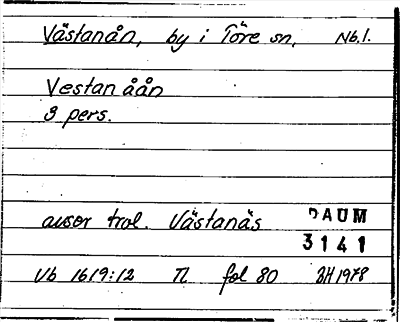 Västanån, by i Töre sn, Nb.l.
Vestan åån
3 pers.
avser trol. Västanås
DAUM
3141
Vb 1619:12 Tl. fol 80 BH 1978